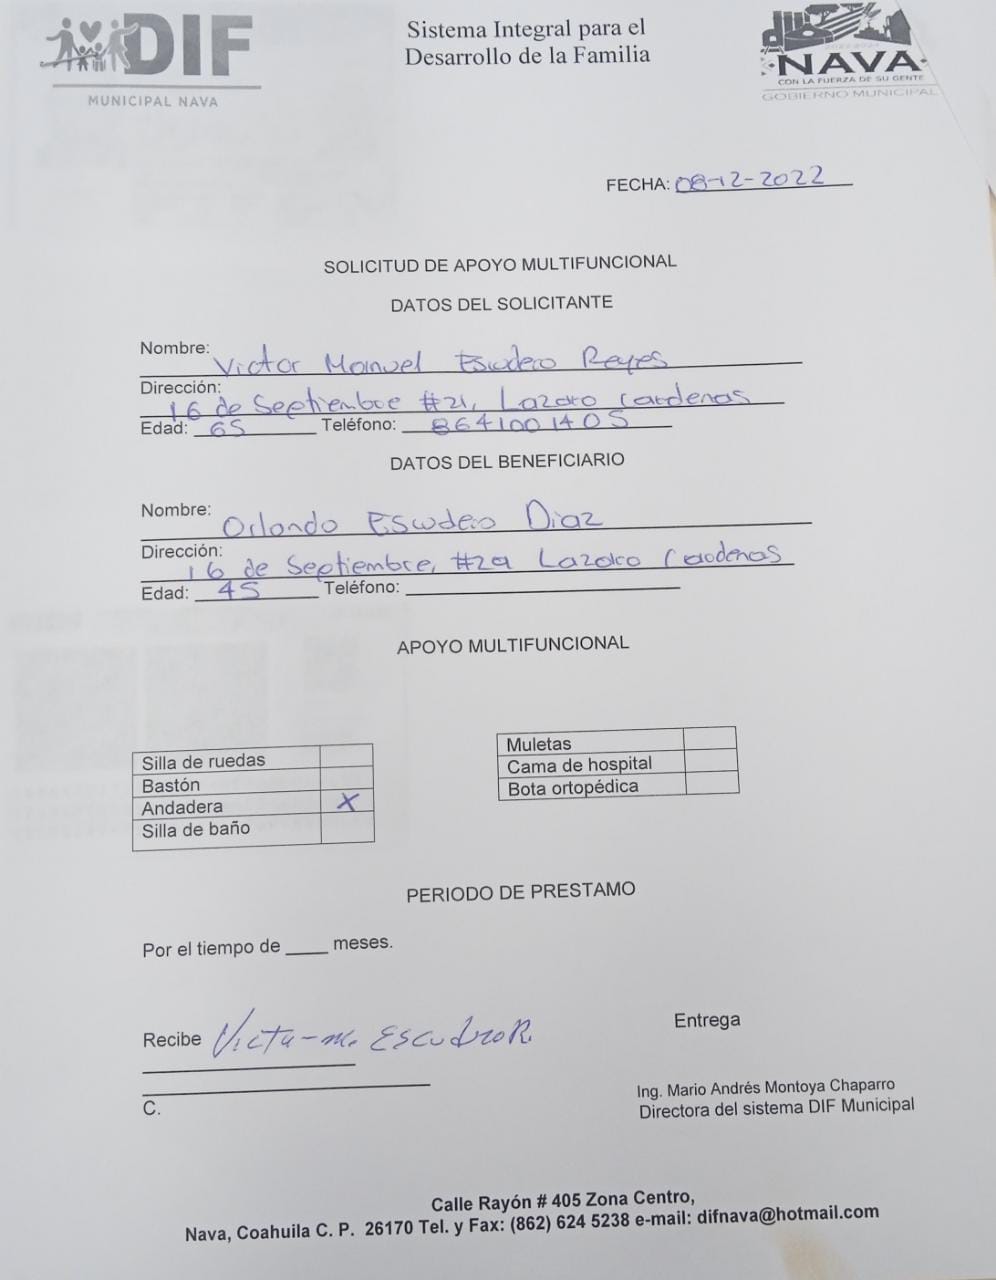 DIF
MUNICIPAL NAVA
Sistema Integral para el
Desarrollo de la Familia
NAVA
CON LA FUERZA DE SU GENTE
GOBIERNO MUNICIPAL
FECHA: 08-12-2022
SOLICITUD DE APOYO MULTIFUNCIONAL
DATOS DEL SOLICITANTE
Nombre: Victor Manuel Escudero Reyes
Dirección: 16 de Septiembre #21, Lazaro Cardenas
Edad: 65 Teléfono: 8641001405
DATOS DEL BENEFICIARIO
Nombre: Orlando Escudero Diaz
Dirección: 16 de Septiembre, #29 Lazaro Cardenas
Edad: 45 Teléfono:
APOYO MULTIFUNCIONAL
Silla de ruedas
Bastón
Andadera X
Silla de baño
Muletas
Cama de hospital
Bota ortopédica
PERIODO DE PRESTAMO
Por el tiempo de ____ meses.
Recibe Victor M. Escudero R.
C.
Entrega
Ing. Mario Andrés Montoya Chaparro
Directora del sistema DIF Municipal
Calle Rayón # 405 Zona Centro,
Nava, Coahuila C. P. 26170 Tel. y Fax: (862) 624 5238 e-mail: difnava@hotmail.com